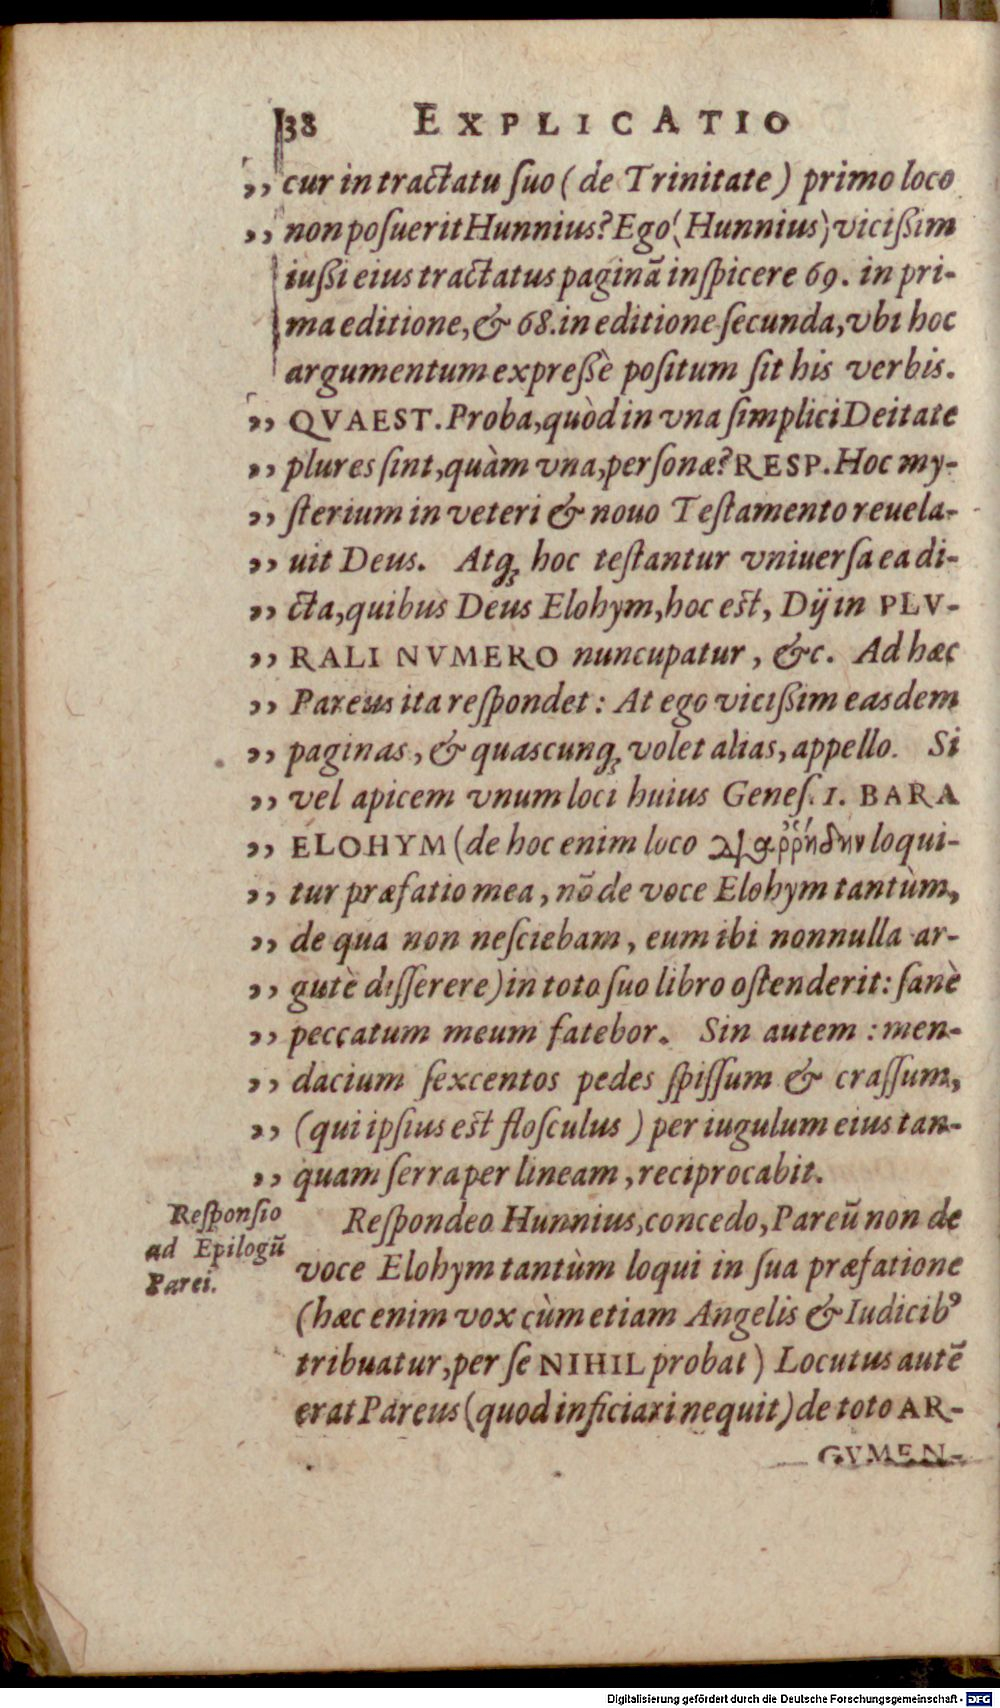 38 EXPLICATIO
,, cur in tractatu ſuo (de Trinitate) primo loco
,, non poſuerit Hunnius? Ego (Hunnius) viciſſim
iuſſi eius tractatus paginā inſpicere 69. in pri-
ma editione, & 68. in editione ſecunda, vbi hoc
argumentum expreſſè poſitum ſit his verbis.
,, QVAEST. Proba, quòd in vna ſimplici Deitate
,, plures ſint, quàm vna, perſonæ? RESP. Hoc my-
,, ſterium in veteri & nouo Teſtamento reuela-
,, uit Deus. Atq; hoc teſtantur vniuerſa ea di-
,, cta, quibus Deus Elohym, hoc eſt, Dij in PLV-
,, RALI NVMERO nuncupatur, &c. Ad hæc
,, Pareus ita reſpondet: At ego viciſſim easdem
,, paginas, & quascunq; volet alias, appello. Si
,, vel apicem vnum loci huius Geneſ. 1. BARA
,, ELOHYM (de hoc enim loco διαῤῥήδην loqui-
,, tur præfatio mea, nō de voce Elohym tantùm,
,, de qua non neſciebam, eum ibi nonnulla ar-
,, gutè diſſerere) in toto ſuo libro oſtenderit: ſanè
,, peccatum meum fatebor. Sin autem: men-
,, dacium ſexcentos pedes ſpiſſum & craſſum,
,, (qui ipſius eſt floſculus) per iugulum eius tan-
,, quam ſerra per lineam, reciprocabit.
Reſponſio
ad Epilogū
Parei.
Reſpondeo Hunnius, concedo, Pareū non de
voce Elohym tantùm loqui in ſua præfatione
(hæc enim vox cùm etiam Angelis & Iudicibꝰ
tribuatur, per ſe NIHIL probat) Locutus autē
erat Pareus (quod inficiari nequit) de toto AR-
GVMEN-
Digitalisierung gefördert durch die Deutsche Forschungsgemeinschaft - DFG